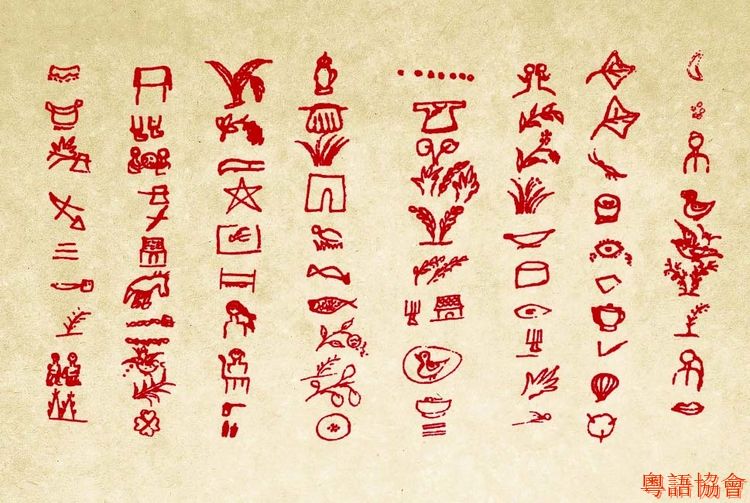 粵語協會